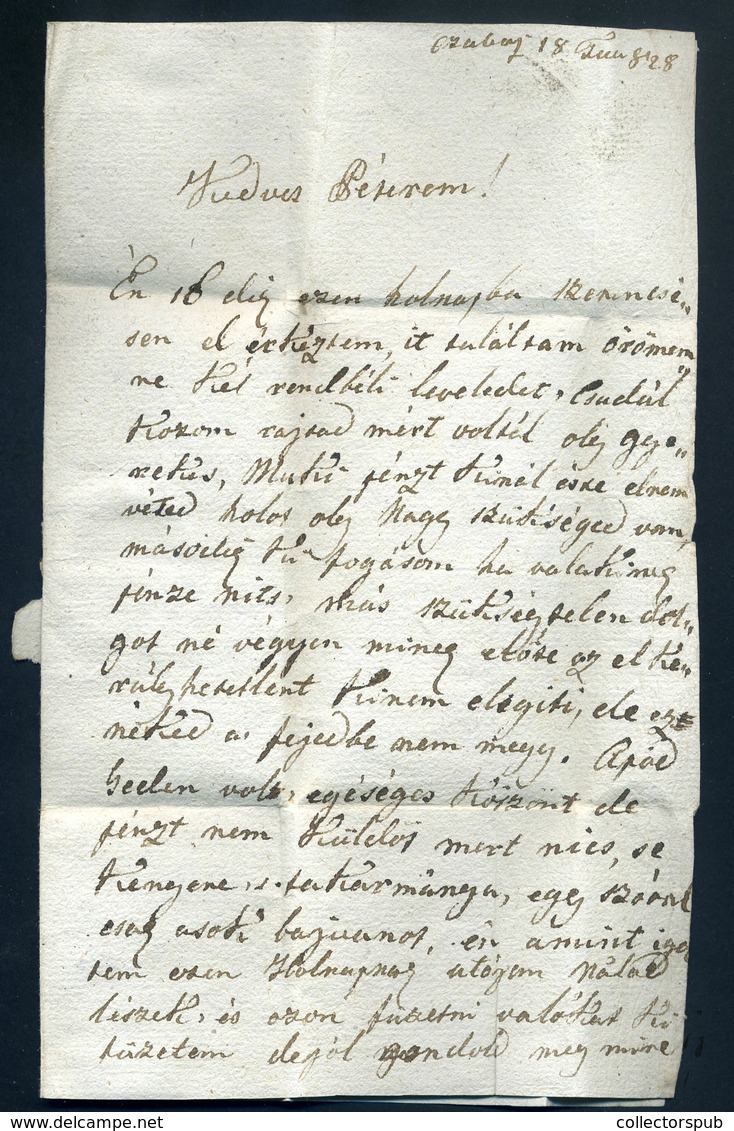 18 828
Kedves Péterem!
Én 16 dig ezen holnapba szerencsé„
sen el érkeztem, it találtam örömem„
re két rendbéli leveledet, Csudál
kozom rajtad mért voltál olÿ gye„
rekes, Muki pénzt kinál és te elnem
véted holot olÿ Nagy szükséged van,
ki fogásom ha valakineg
pénze nits, más szükségtelen dol„
got né végyen mineg előtte az elke„
rülhetetlent ki nem elégiti, de ezt
néked a fejedbe nem megy. Apád
heelen volt, egéséges köszönt de
pénzt nem küldöt mert nics, se
kenyere s takarmánya, egy szóval
csag a sok baj van ot, én amint
tem ezen Holnapnag utóján Nálad
lészek, és azon fizetni valókat ki
fizetem de jól gondold meg mire
collectorspub